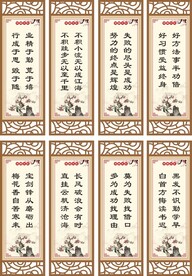 业精于勤 荒于嬉
行成于思 毁于随
不积小流无以成江海
不积跬步无以至千里
失败的尽头是成功
努力的终点是辉煌
好方法事半功倍
好习惯受益终身
宝剑锋从磨砺出
梅花香自苦寒来
长风破浪会有时
直挂云帆济沧海
莫为失败找借口
多为成功找理由
黑发不识勤学早
白首方悔读书迟